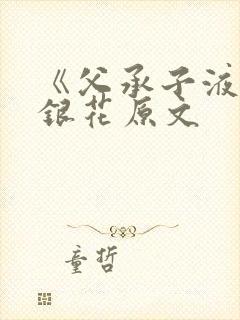 《父承子液
銀花原文
童哲